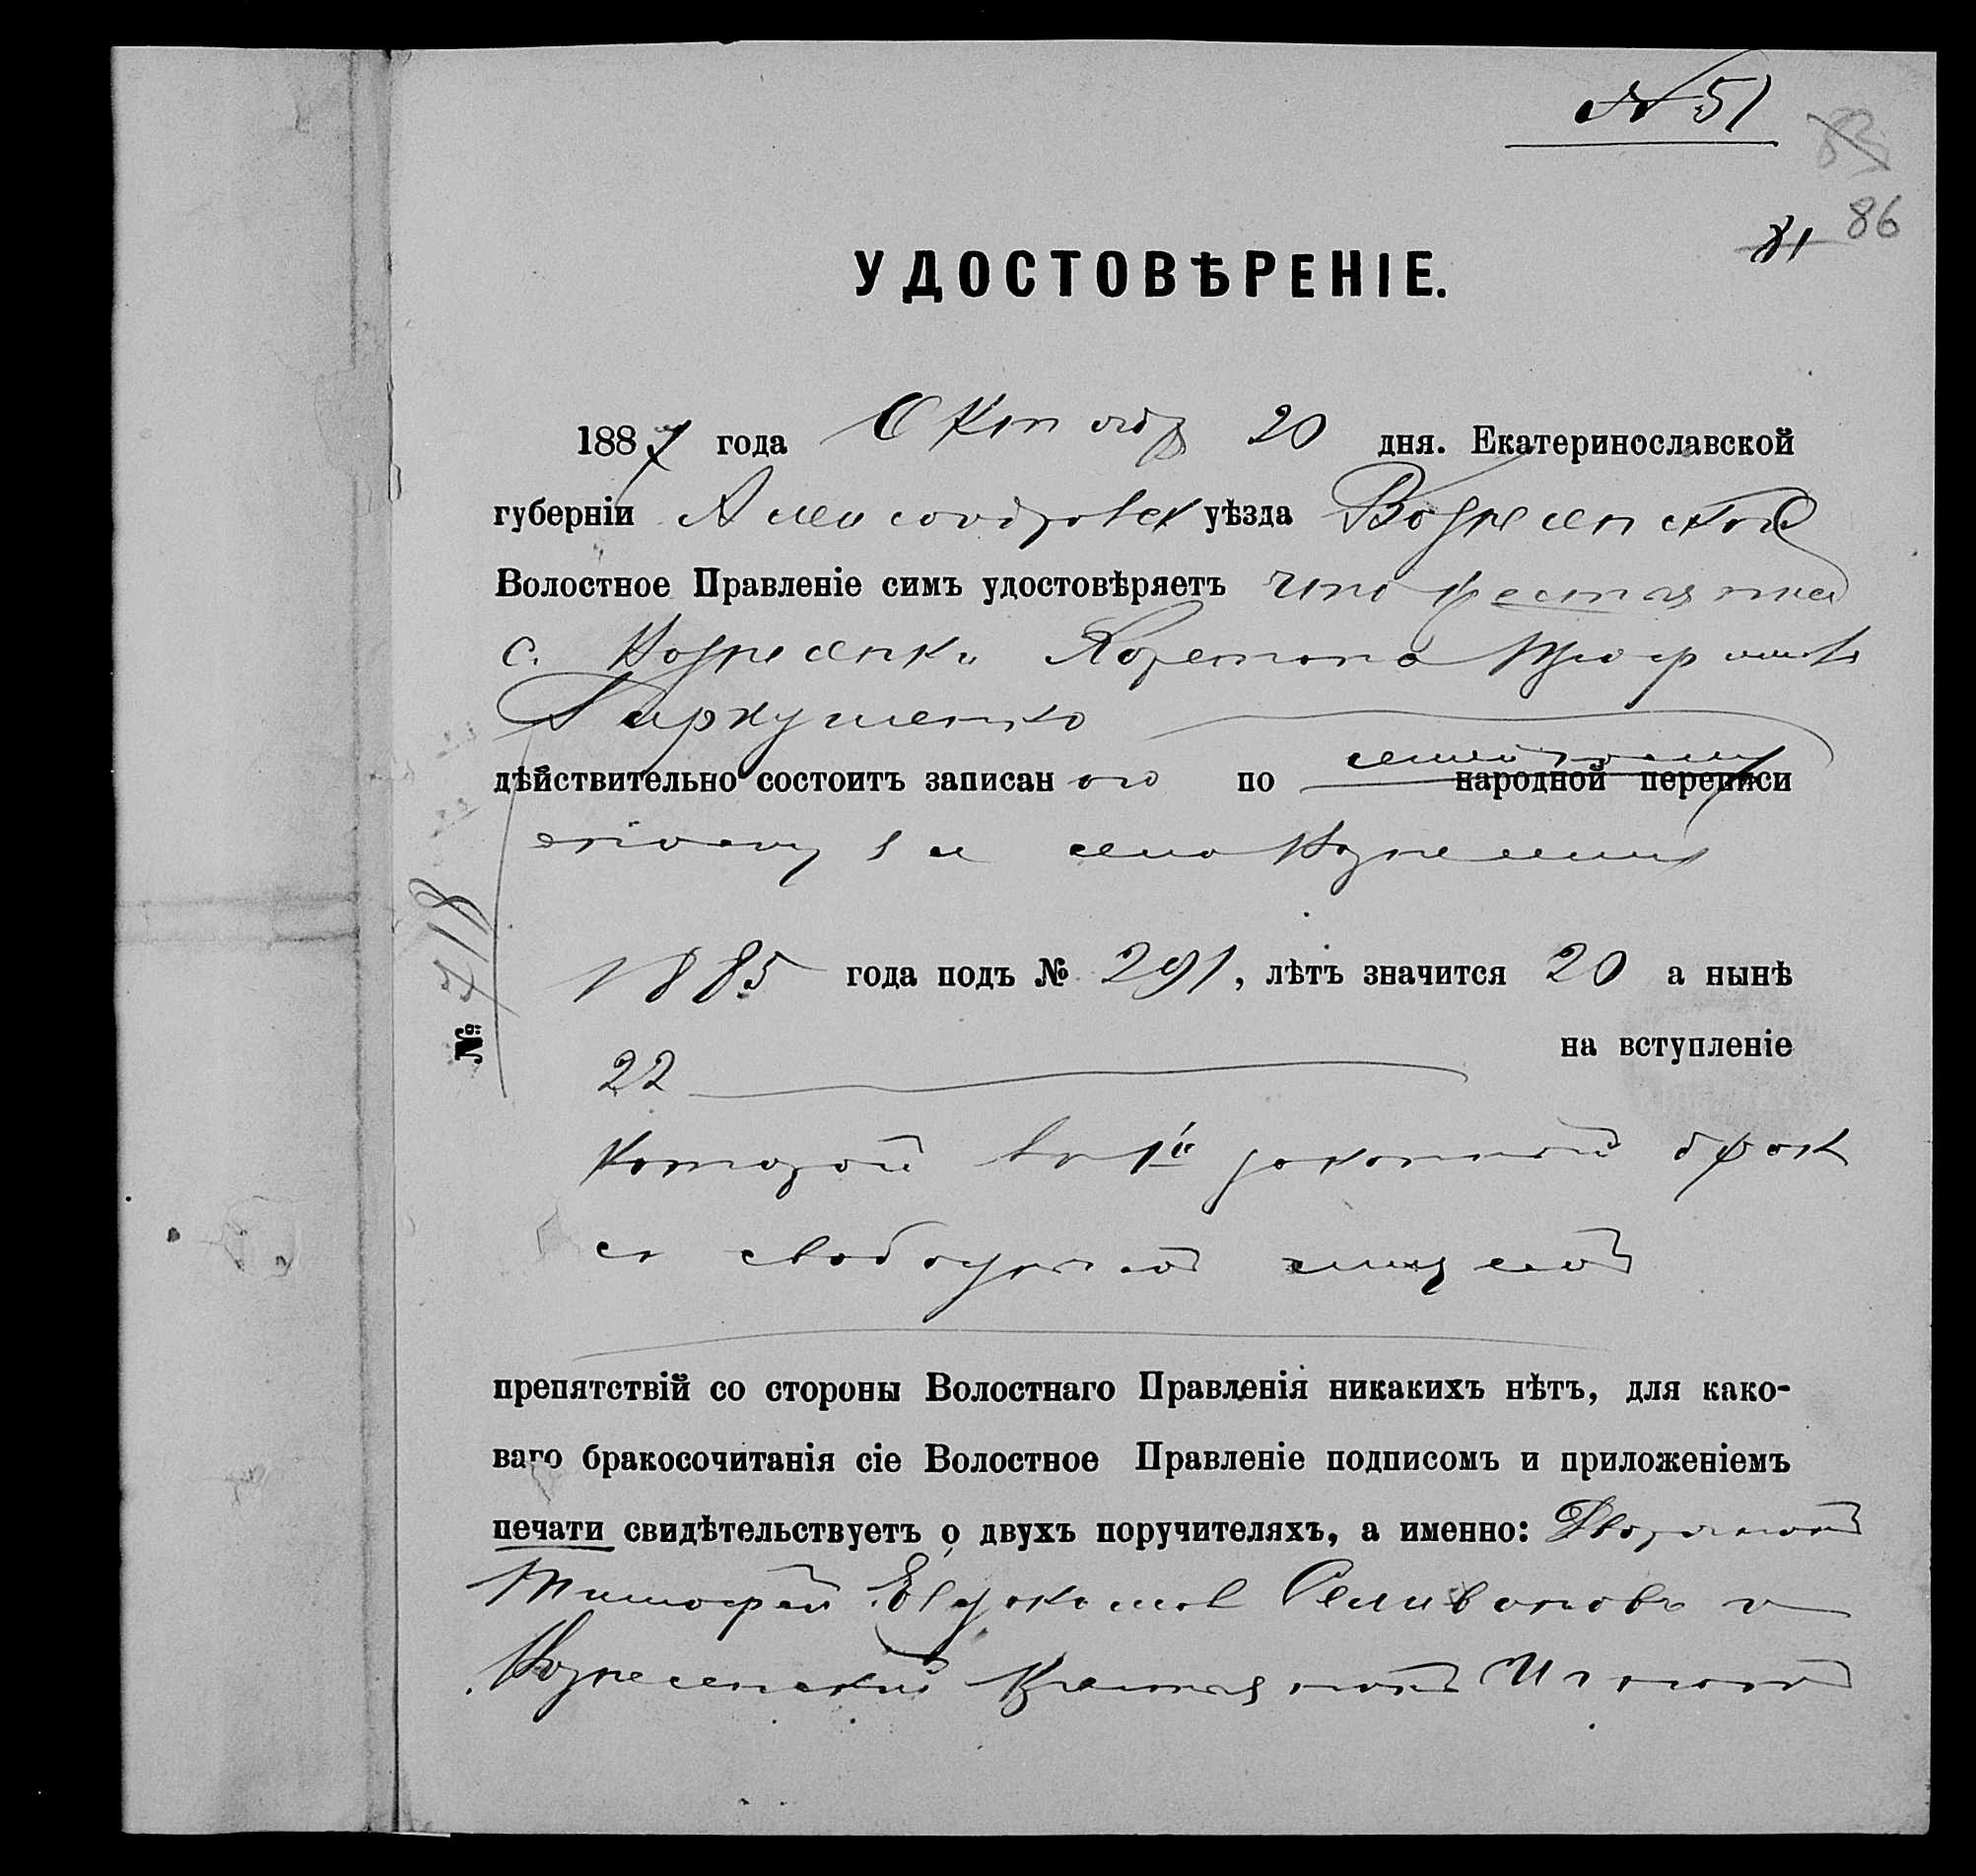 № 51
83
81 86
УДОСТОВѢРЕНІЕ.
1887 года Октябр 20 дня. Екатеринославской
губерніи Александровск уѣзда Вознесенское
Волостное Правленіе симъ удостовѣряетъ что крестьянка
с. Вознесенки Трофимова
Гаркушенко
дѣйствительно состоитъ записан ою по семейному народной переписи
списку села Вознесенки
1885 года подъ № 291, лѣтъ значится 20 а нынѣ
22 на вступленіе
которой въ 1й законной брак
съ свободной
препятствій со стороны Волостнаго Правленія никакихъ нѣтъ, для како-
ваго бракосочитанія сіе Волостное Правленіе подписомъ и приложеніемъ
печати свидѣтельствуетъ о двухъ поручителяхъ, а именно: Дворянинъ
Тимофей Евдокимов Селивановъ и
Вознесенский крестьянинъ
№ 718